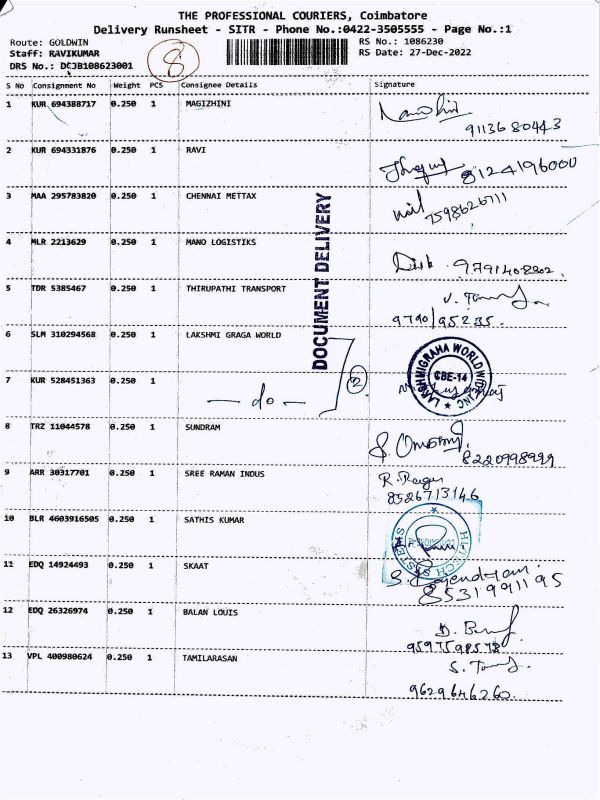 THE PROFESSIONAL COURIERS, Coimbatore
Delivery Runsheet - SITR - Phone No.:0422-3505555 - Page No.:1
Route: GOLDWIN
Staff: RAVIKUMAR
DRS No.: DCJB108623001
8
RS No.: 1086230
RS Date: 27-Dec-2022
S No Consignment No Weight PCS Consignee Details Signature
1 KUR 694388717 0.250 1 MAGIZHINI
9113680443
2 KUR 694331876 0.250 1 RAVI
8124196000
3 MAA 295783820 0.250 1 CHENNAI METTAX
7598626711
4 MLR 2213629 0.250 1 MANO LOGISTIKS
9791408802.
5 TDR 5385467 0.250 1 THIRUPATHI TRANSPORT
9790195235.
DOCUMENT DELIVERY
6 SLM 310294568 0.250 1 LAKSHMI GRAGA WORLD
LAKSHMIGRAHA WORLDWIDE INC
CBE-14
7 KUR 528451363 0.250 1 — do —
2
8 TRZ 11044578 0.250 1 SUNDRAM
8220998999
9 ARR 30317701 0.250 1 SREE RAMAN INDUS
R. Ragu
8526713146
10 BLR 4603916505 0.250 1 SATHIS KUMAR
HI-TECH SYSTEMS
11 EDQ 14924493 0.250 1 SKAAT
S. Rajendran.
8531991195
12 EDQ 26326974 0.250 1 BALAN LOUIS
9597598578
13 VPL 400980624 0.250 1 TAMILARASAN
9629646260.